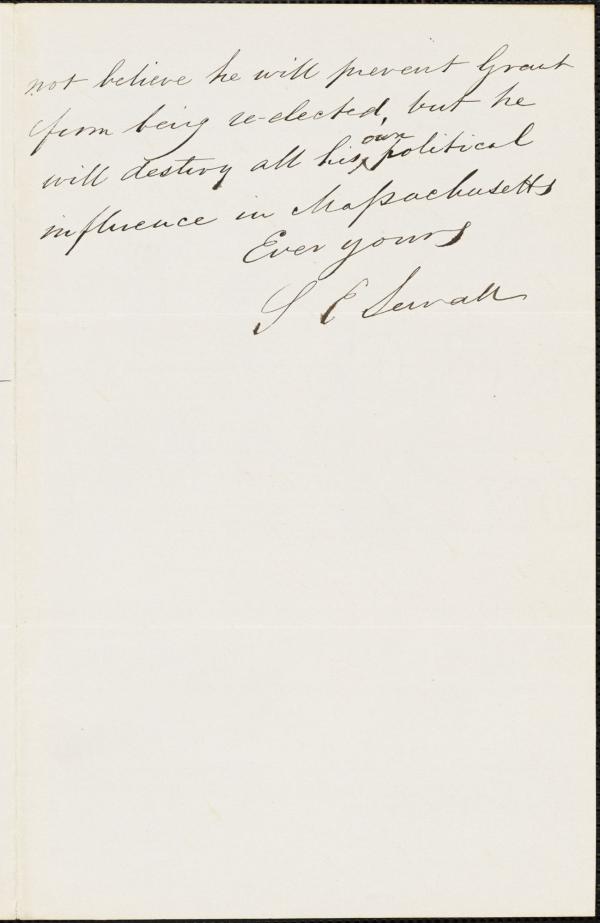 not believe he will prevent Grant
from being re-elected, but he
will destroy all his own political
influence in Massachusetts
Ever yours
S E Sewall